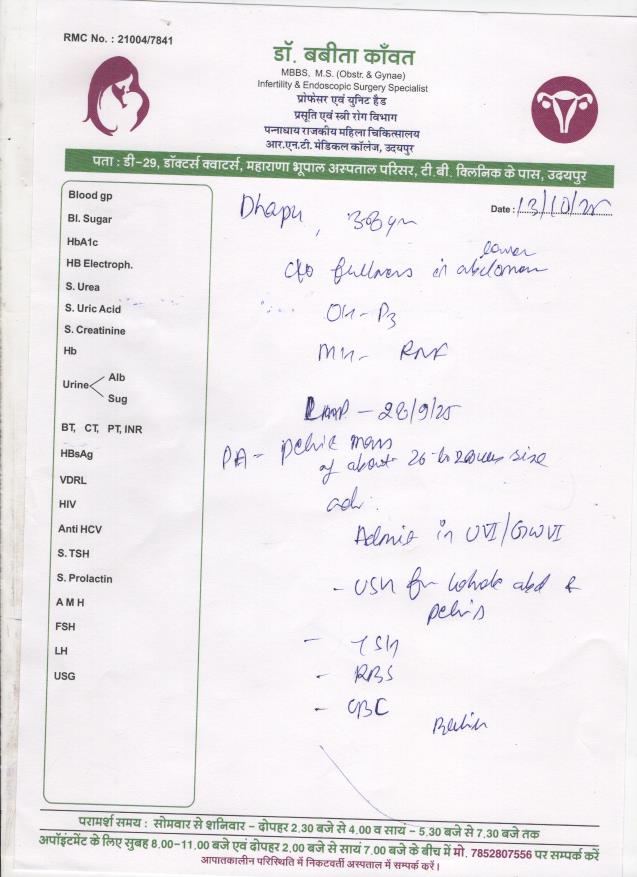 RMC No. : 21004/7841
डॉ. बबीता काँवत
MBBS, M.S. (Obstr. & Gynae)
Infertility & Endoscopic Surgery Specialist
प्रोफेसर एवं युनिट हैड
प्रसूति एवं स्त्री रोग विभाग
पन्नाधाय राजकीय महिला चिकित्सालय
आर.एन.टी. मेडिकल कॉलेज, उदयपुर
पता : डी-29, डॉक्टर्स क्वाटर्स, महाराणा भूपाल अस्पताल परिसर, टी.बी. क्लिनिक के पास, उदयपुर
Date : 13/10/25
Dhapu, 38yr
c/o fullness in lower abdomen
OH - P3
MH -
LMP - 28/9/25
PA - pelvic mass
of about 26 to size
adv.
Admit in
- USG for whole abd &
pelvis
- TSH
- RBS
- CBC
Blood gp
Bl. Sugar
HbA1c
HB Electroph.
S. Urea
S. Uric Acid
S. Creatinine
Hb
Urine Alb
Sug
BT, CT, PT, INR
HBsAg
VDRL
HIV
Anti HCV
S. TSH
S. Prolactin
A M H
FSH
LH
USG
परामर्श समय : सोमवार से शनिवार - दोपहर 2.30 बजे से 4.00 व सायं - 5.30 बजे से 7.30 बजे तक
अपॉइंटमेंट के लिए सुबह 8.00-11.00 बजे एवं दोपहर 2.00 बजे से सायं 7.00 बजे के बीच में मो. 7852807556 पर सम्पर्क करें
आपातकालीन परिस्थिति में निकटवर्ती अस्पताल में सम्पर्क करें।